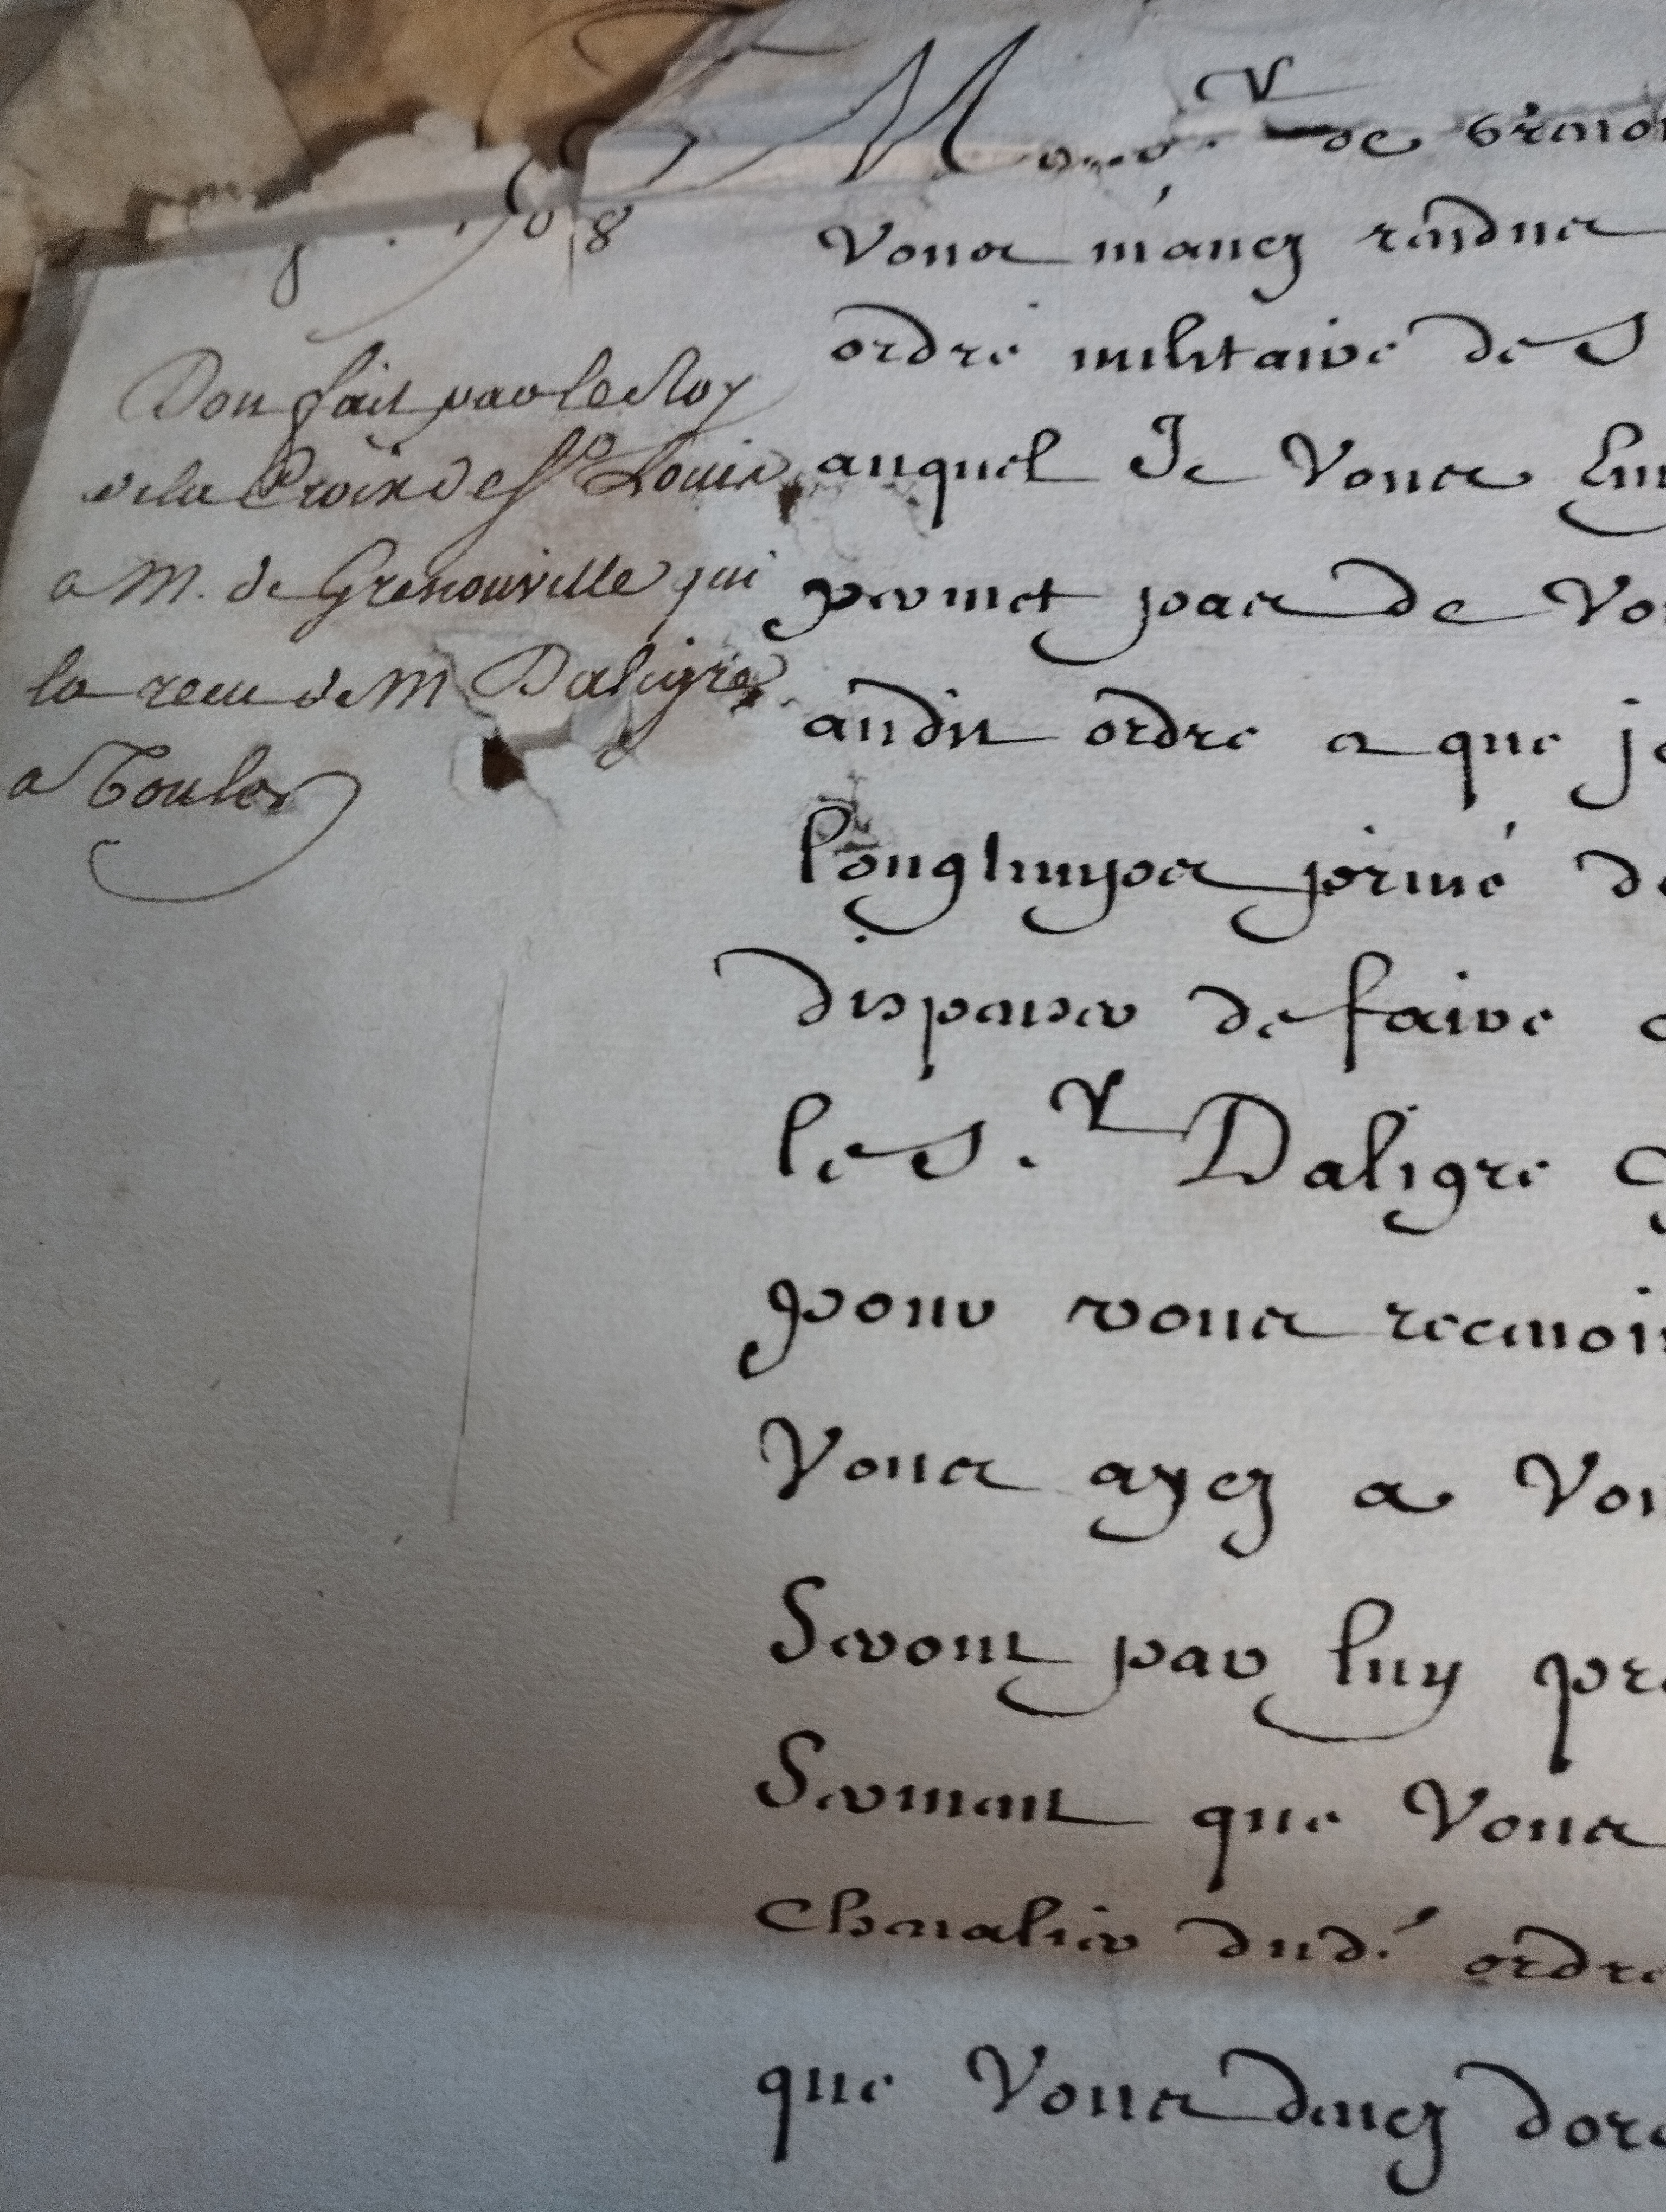 1708
Don fait par le Roy
de la Croix de St Louis
a M. de Grenonville qui
la receu de M Daligre
a Toulon
Monsr. de Grenon
Vous m'avez rendues
ordre militaire de S
auquel Je Vous
permet pas de Vo
audit ordre et que je
longtemps privé de
dispenser de faire
le S.r Daligre
pour vous recevoir
Vous ayez a Vou
Seront par luy pre
Serment que Vous
Chevalier dud. ordre
que Vous devez dore